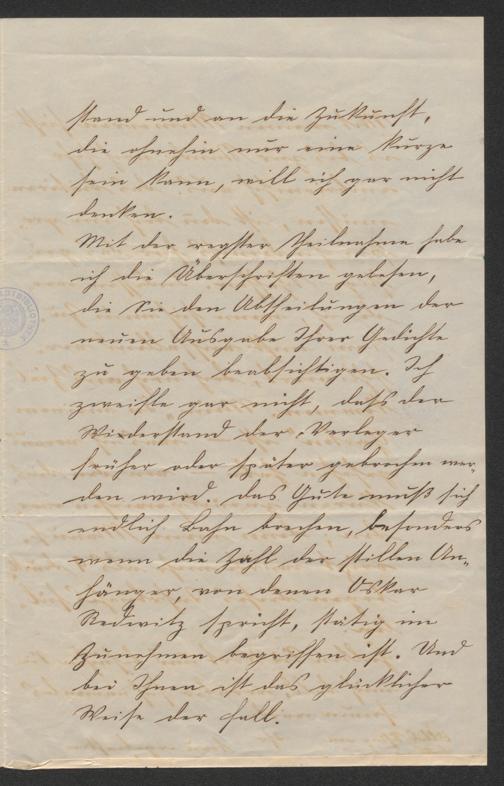 stand und an die Zukunft,
die ohnehin nur eine kurze
sein kann, will ich gar nicht
denken.
Mit der regster Theilnahme habe
ich die Überschriften gelesen,
die Sie den Abtheilungen der
neuen Ausgabe Ihrer Gedichte
zu geben beabsichtigen. Ich
zweifle gar nicht, daß der
Widerstand der Verleger
früher oder später gebrochen wer-
den wird. Das Gute muß sich
endlich Bahn brechen, besonders
wenn die Zahl der stillen An-
hänger, von denen Oskar
Redwitz spricht, stätig im
Zunehmen begriffen ist. Und
bei Ihnen ist das glücklicher
Weise der Fall.